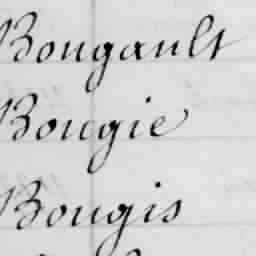 Bougault
Bougie
Bougis